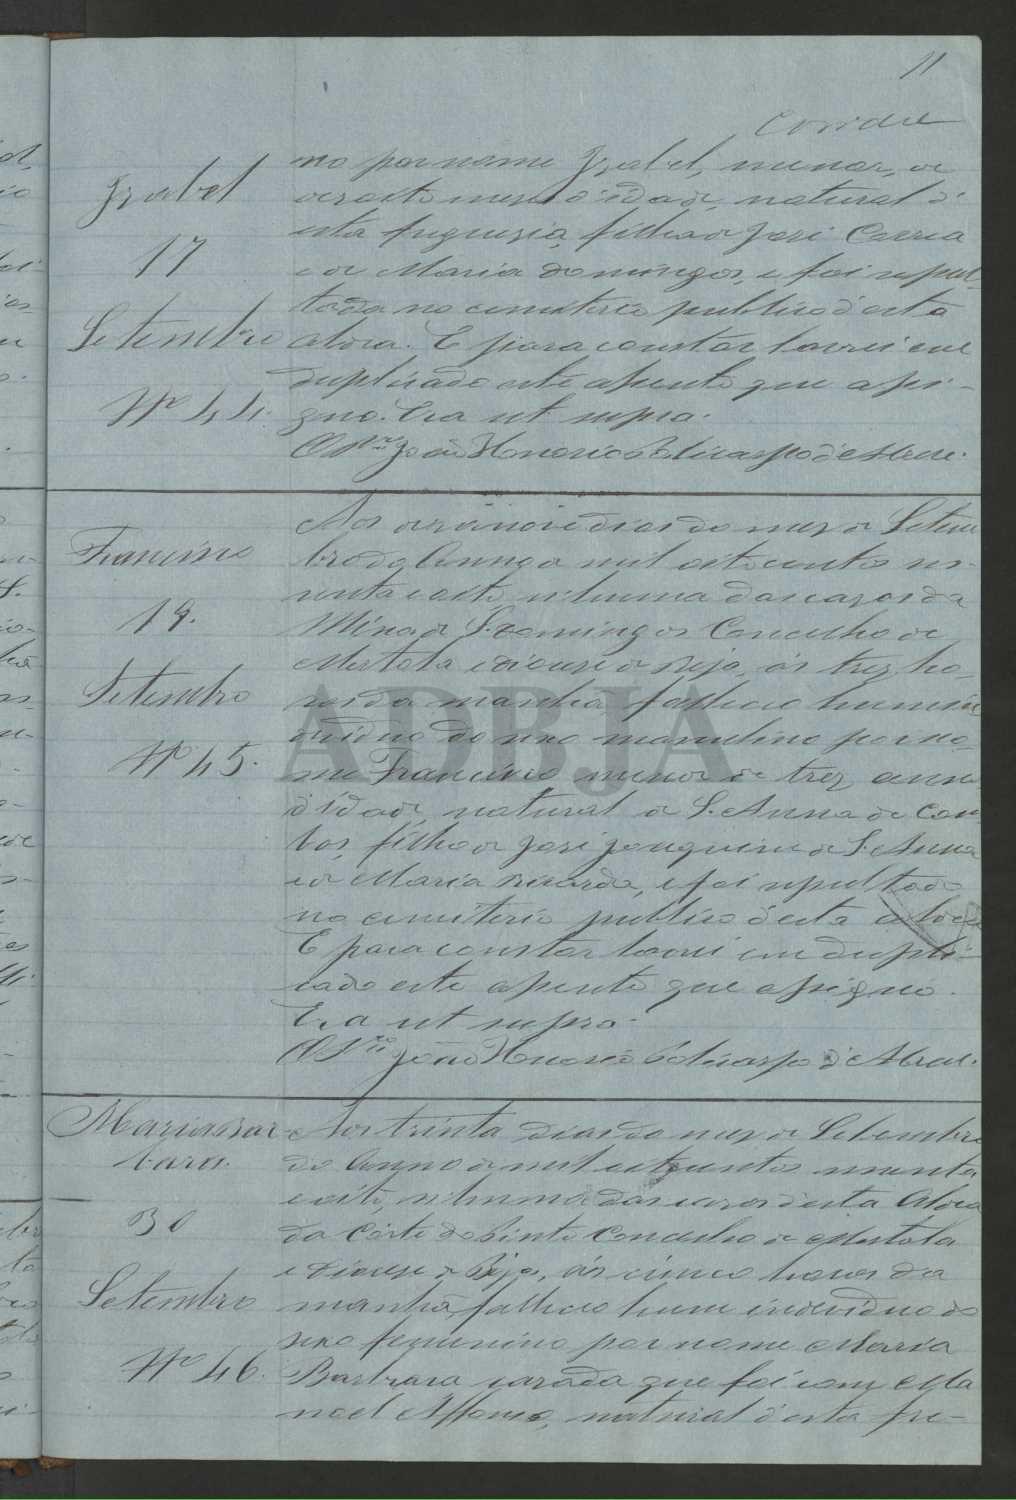 11
Izabel
17
Setembro
Nº 44.
no por nome Izabel, menor, de
dezoito mezes d'idade, natural d'
esta freguezia, filha de José Correa
e de Maria Domingos, e foi sepul-
tada no cemiterio publico d'esta
aldea. E para constar lavrei em
duplicado este assento que assi-
gno. Era ut supra.
O Pr.e João Honorio Policarpo d'Abreu.
Francisco
19.
Setembro
Nº 45.
Aos dezanove dias do mez de Setem
bro do Anno de mil oitocentos ses-
senta e oito n'huma das cazas da
Mina de S. Domingos Concelho de
Mertola e Diocese de Beja, ás trez ho-
ras da manhã falleceo hum in
dividuo do sexo masculino por no-
me Francisco menor de trez annos
d'idade, natural de S. Anna de Cam
bas, filho de José Joaquim de S. Anna
e de Maria Ricarda, e foi sepultado
no cemiterio publico d'esta aldea
E para constar lavrei em dupli-
cado este assento que assigno.
Era ut supra.
O Pr.e João Honorio Policarpo d'Abreu.
Maria Bar-
bara.
30
Setembro
Nº 46.
Aos trinta dias do mez de Setembro
do Anno de mil oitocentos sessenta
e oito, n'huma das cazas d'esta Aldea
da Côrte do Pinto Concelho de Mertola
e Diocese de Beja, ás cinco horas da
manhã, falleceo hum individuo do
sexo femenino por nome Maria
Barbara cazada que foi com Ma
noel Affonso, natural d'esta fre-
ADBJA